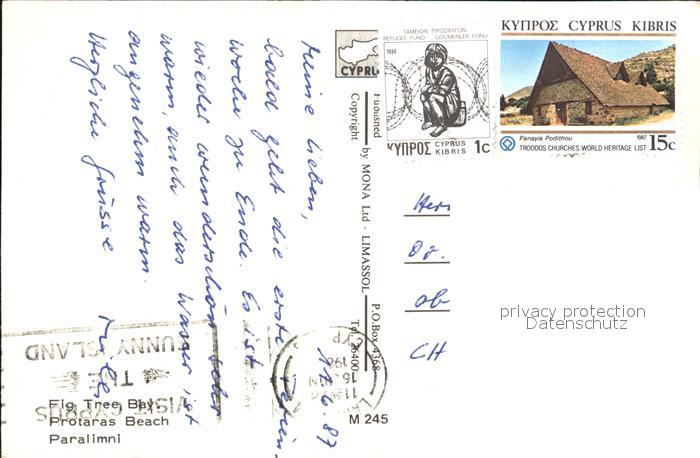 Meine Lieben,
bald geht die erste Ferien-
woche zu Ende. Es ist
wieder wunderschön
warm, auch das Wasser ist
angenehm warm.
Herzliche Grüsse
17.6.87
CYPRUS
Copyright
by MONA Ltd - LIMASSOL
P.O.Box 4368
Tel. 26400
ΤΑΜΕΙΟΝ ΠΡΟΣΦΥΓΩΝ
REFUGEE FUND GÖÇMENLER FONU
1984
ΚΥΠΡΟΣ CYPRUS KIBRIS 1c
ΚΥΠΡΟΣ CYPRUS KIBRIS
Panayia Podithou
1987
15c
TROODOS CHURCHES: WORLD HERITAGE LIST
Herr
Dr.
Ob
CH
privacy protection
Datenschutz
VISIT CYPRUS
THE
SUNNY ISLAND
Fig Tree Bay
Protaras Beach
Paralimni
M 245